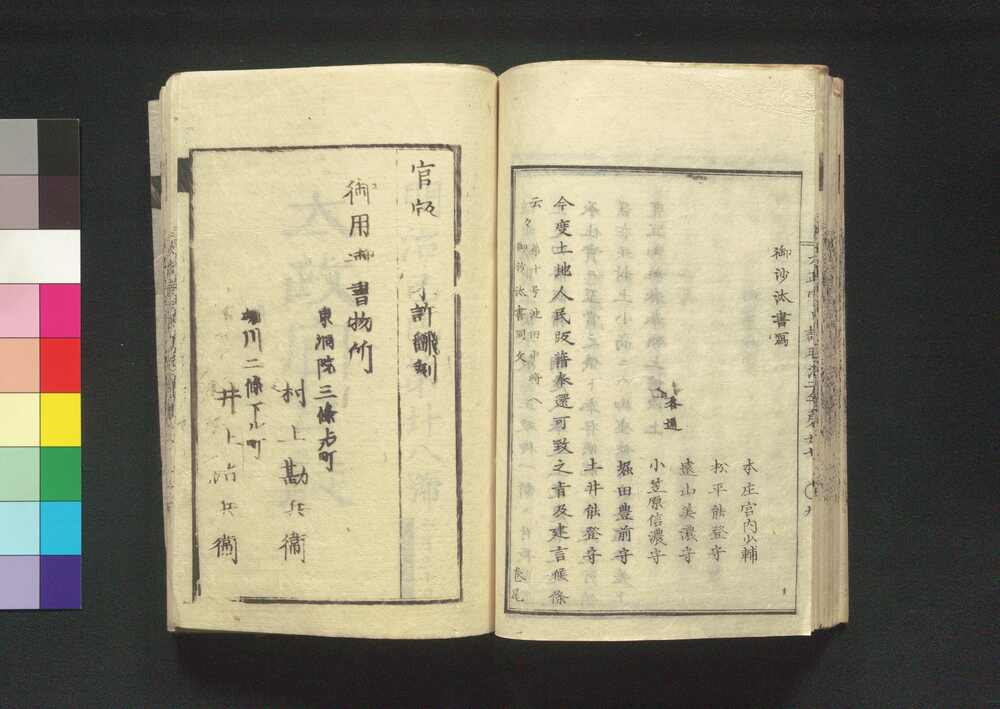 御沙汰書寫
本庄宮内少輔
松平能登守
遠山美濃守
各通
小笠原信濃守
堀田豊前守
土井能登守
今度土地人民版籍奉還可致之旨及建言候條
云々
第十号池田中將ヘ
御沙汰書同文
巻尾
官版
許飜刻
御用御書物所
東洞院三條上ル町
村上勘兵衞
堀川二條下ル町
井上治兵衞